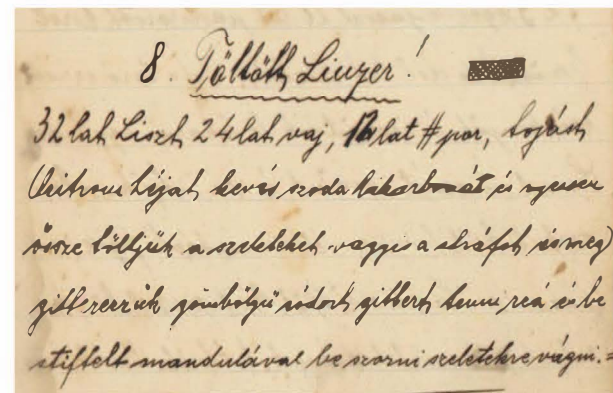 8. Töltött Linzer!
32 lat Liszt 24 lat vaj, 12 lat # por, tojást
Citrom héjat kevés szoda bikarbonát és nyersen
össze töltjük a szeleteket vagyis a stráfot és meg
gömbölyű sódort gittert tenni reá és be
stiftelt mandulával be szorni szeletekre vágni. =